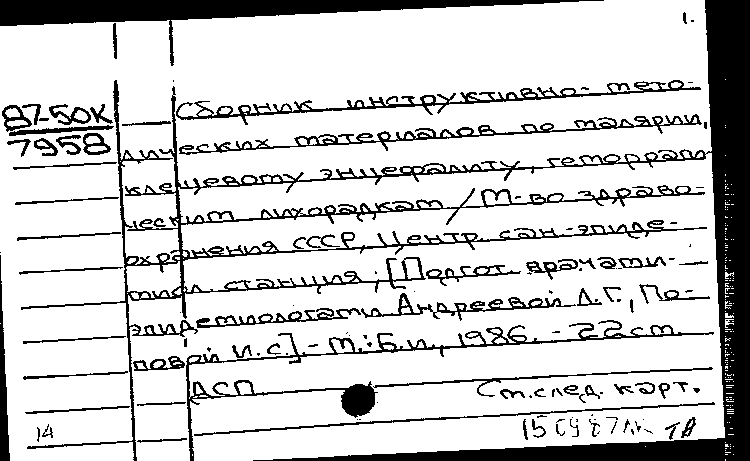 1.
87-50К
7958
Сборник инструктивно-мето-
дических материалов по малярии,
клещевому энцефалиту, геморраги-
ческим лихорадкам / М-во здраво-
охранения СССР, Центр. сан.-эпиде-
миол. станция; [Подгот. врачами-
эпидемиологами Андреевой Л.Г., По-
повой И.С.]. - М.: Б.и., 1986. - 22см.
ДСП
См.след. карт.
14